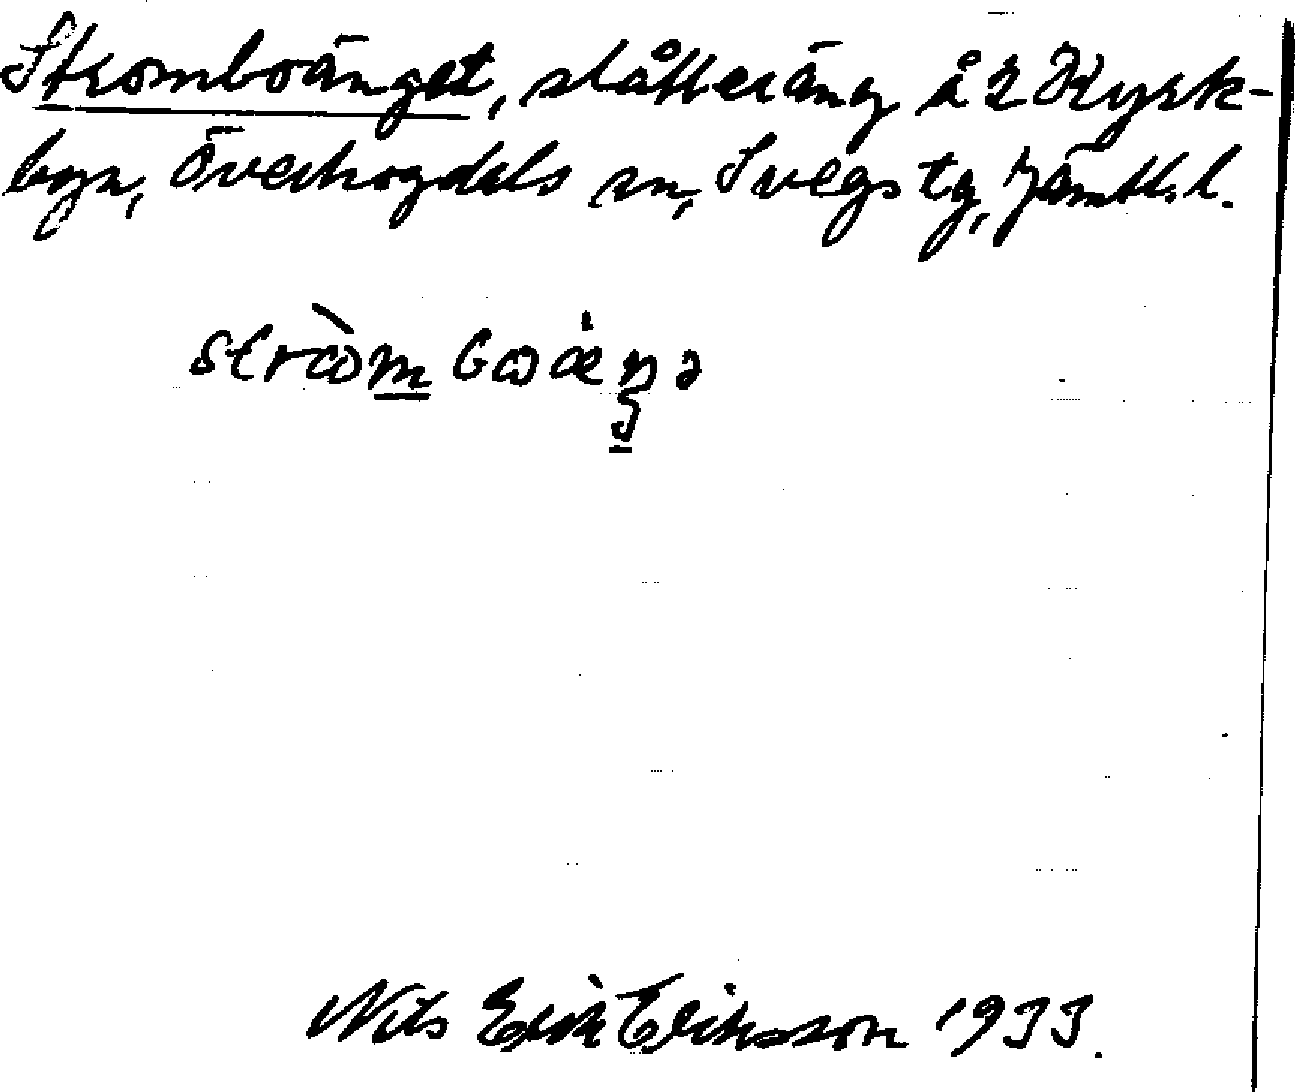 Stromboänget, slåtteräng å 2 Kyrk-
byn, Överhogdals sn, Svegs tg, Jämtl. l.
stròmboæŋə
Nils Erik Eriksson 1933.